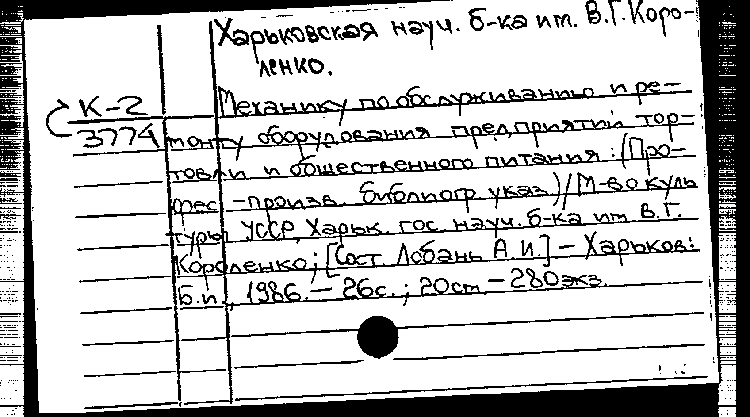 Харьковская науч. б-ка им. В.Г. Коро-
ленко.
К-2
3774
Механику по обслуживанию и ре-
монту оборудования предприятий тор-
говли и общественного питания: (Про-
фес.-произв. библиогр. указ.) / М-во куль
туры УССР, Харьк. гос. науч. б-ка им. В.Г.
Короленко; [Сост. Лобань А.И.] - Харьков:
Б.и., 1986. - 26с.; 20см - 280экз.